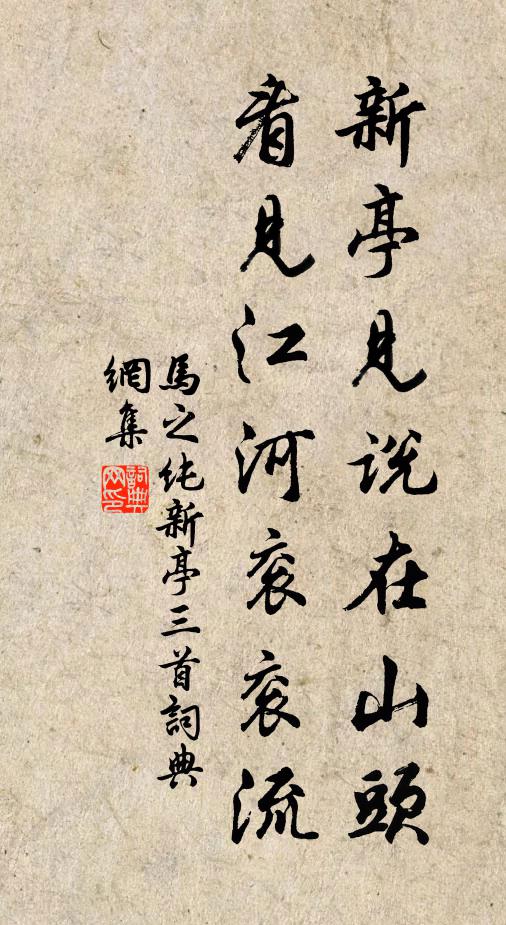 新亭見説在山頭
看見江河衮衮流
馬之純新亭三首詞典
網集
詞典
网印